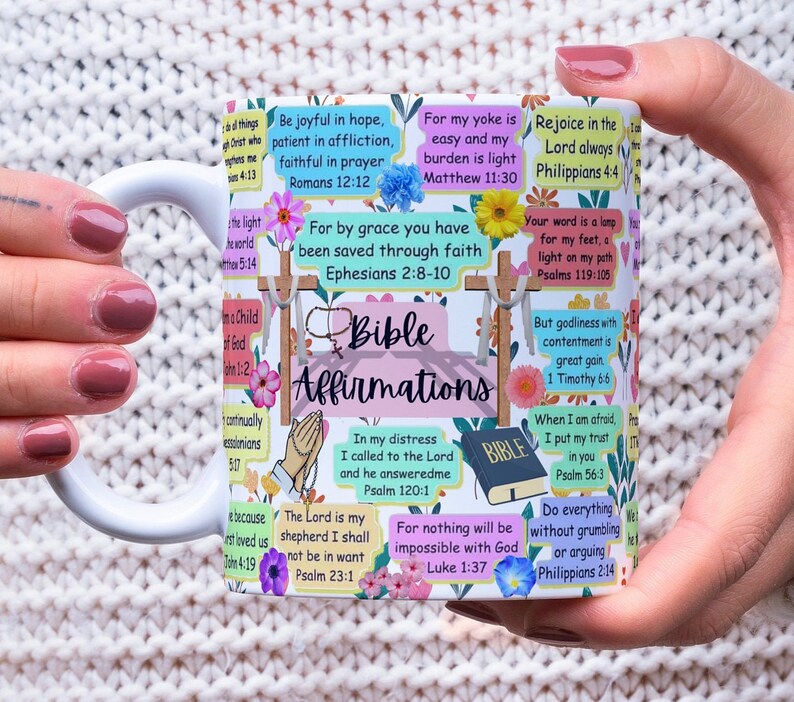 do all things
Christ who
me
4:13
Be joyful in hope,
patient in affliction,
faithful in prayer
Romans 12:12
For my yoke is
easy and my
burden is light
Matthew 11:30
Rejoice in the
Lord always
Philippians 4:4
the light
world
5:14
For by grace you have
been saved through faith
Ephesians 2:8-10
Your word is a lamp
for my feet, a
light on my path
Psalms 119:105
a Child
of God
1:2
Bible
Affirmations
But godliness with
contentment is
great gain.
1 Timothy 6:6
continually
5:17
In my distress
I called to the Lord
and he answeredme
Psalm 120:1
BIBLE
When I am afraid,
I put my trust
in you
Psalm 56:3
because
loved us
John 4:19
The Lord is my
shepherd I shall
not be in want
Psalm 23:1
For nothing will be
impossible with God
Luke 1:37
Do everything
without grumbling
or arguing
Philippians 2:14